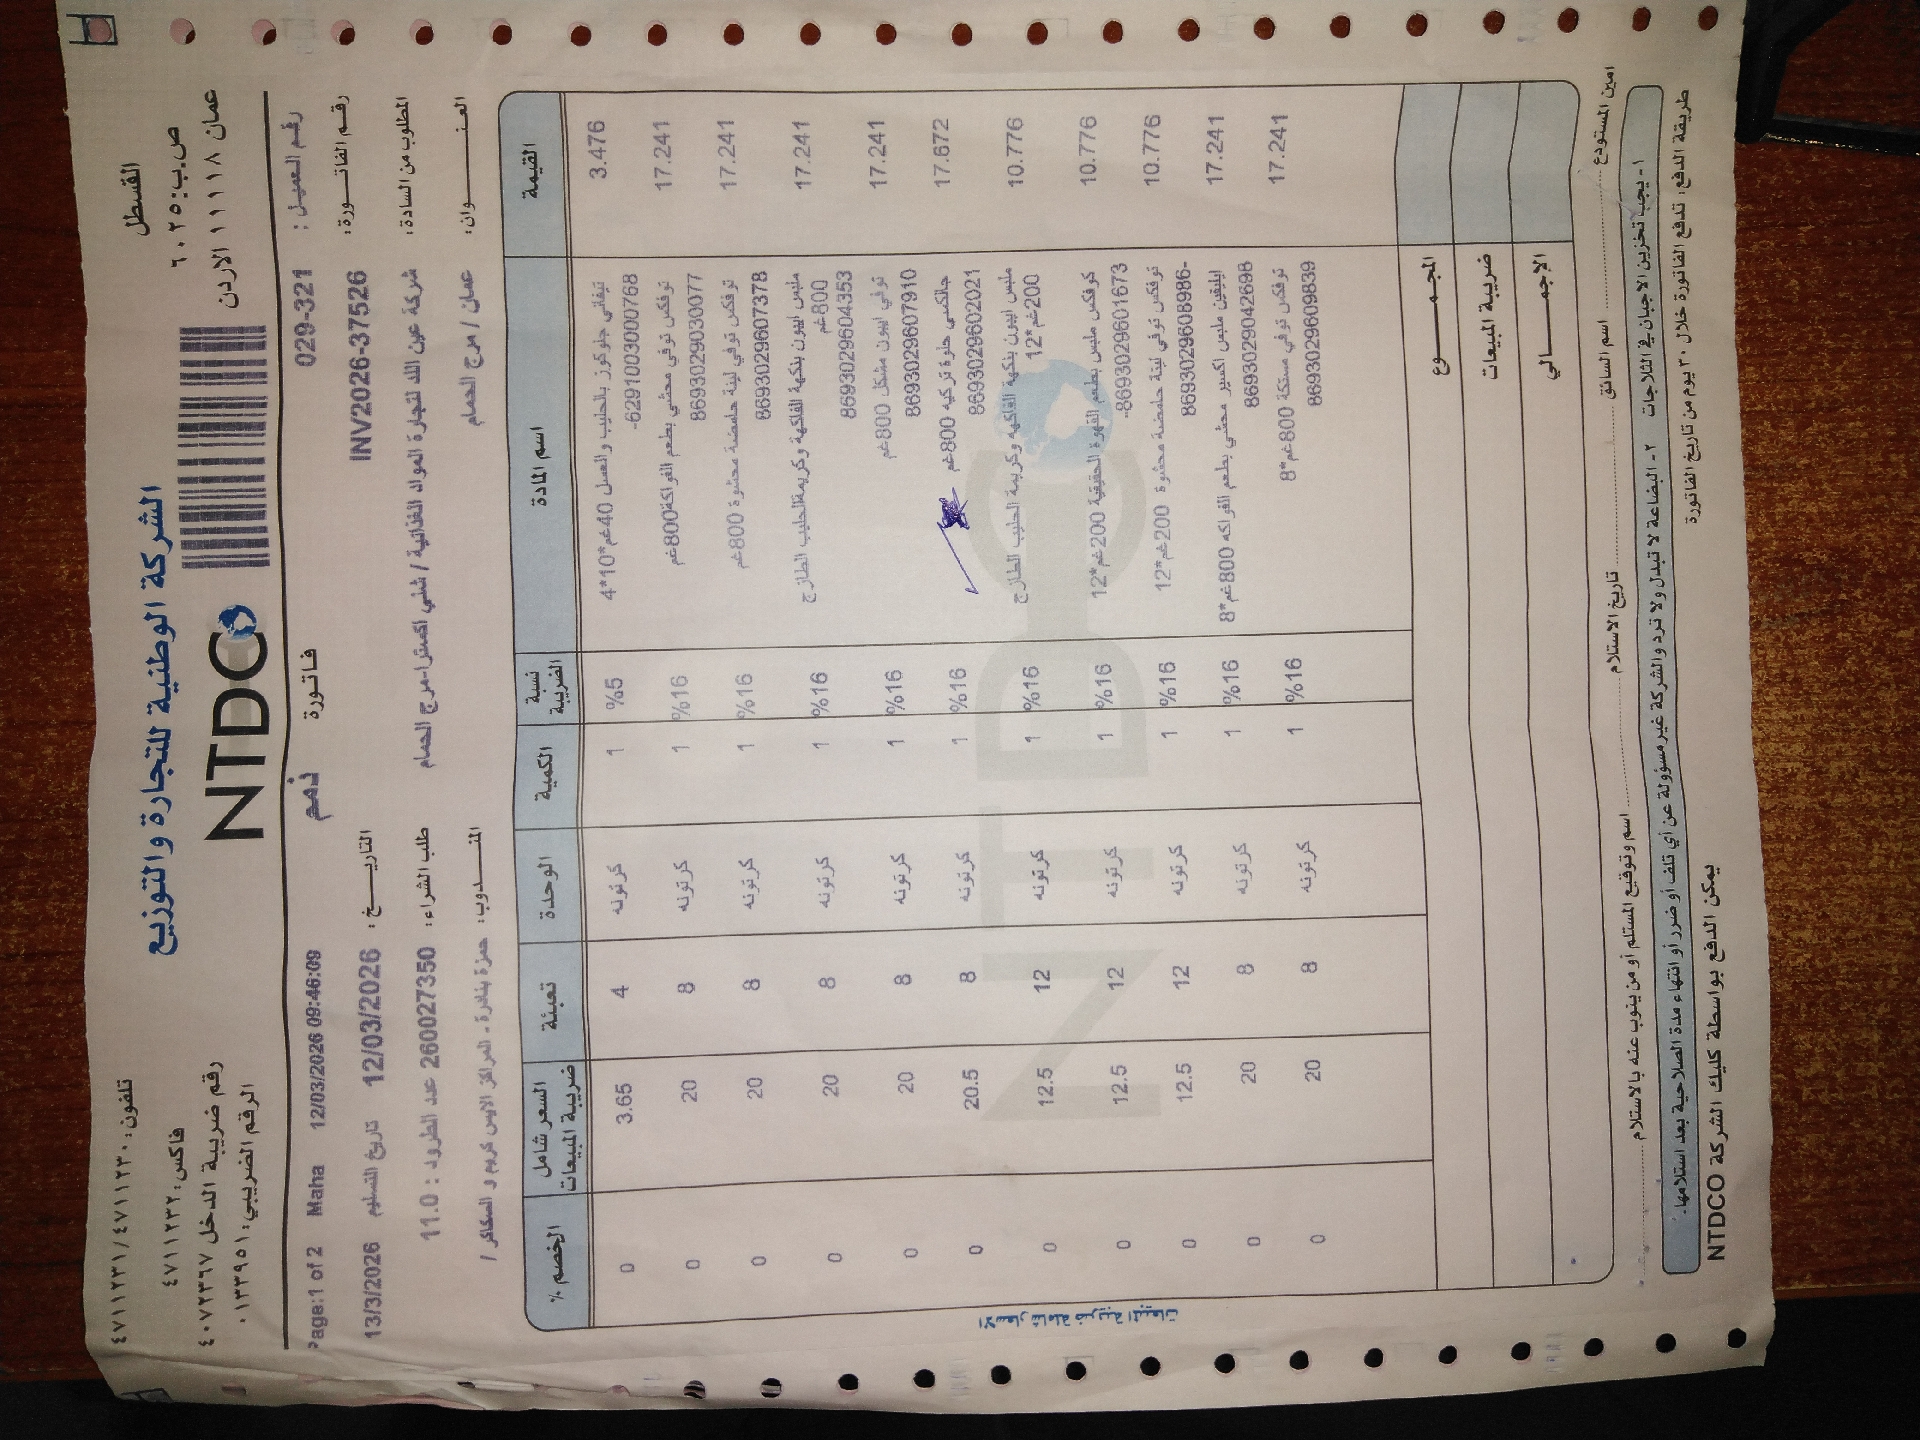 الشركة الوطنية للتجارة والتوزيع
القسطل
ص.ب: ٦٠٢٥
عمان ١١١١٨ الاردن
NTDCO
تلفون: ٤٧١١٢٣٠ / ٤٧١١٢٣١
فاكس: ٤٧١١٢٣٢
رقم ضريبة الدخل ٤٠٧٢٣٦٧
الرقم الضريبي: ٠١٣٣٩٥١
رقم العميل : 029-321 فاتورة ذمم 12/03/2026 09:46:09 Maha Page:1 of 2
رقم الفاتورة: INV2026-37526 التاريخ: 12/03/2026 تاريخ التسليم 13/3/2026
المطلوب من السادة: شركة عين اللد لتجارة المواد الغذائية / شلبي اكسترا-مرج الحمام طلب الشراء: 260027350 عدد الطرود : 11.0
العنوان: عمان / مرج الحمام المندوب: حمزة بنادرة - المراكز الايس كريم و السكاكر /
القيمة اسم المادة نسبة الضريبة الكمية الوحدة تعبئة السعر شامل ضريبة المبيعات الخصم %
3.476 تيفاني جلوكوز بالحليب و العسل 40غم*10*4 6291003000768- %5 1 كرتونه 4 3.65 0
17.241 توفكس توفي محشي بطعم الفواكة800غم 8693029030077 %16 1 كرتونه 8 20 0
17.241 توفكس توفي لينة حامضة محشوة 800غم 8693029607378 %16 1 كرتونه 8 20 0
17.241 ملبس ايبون بنكهة الفاكهة وكريمةالحليب الطازج 800غم 8693029604353 %16 1 كرتونه 8 20 0
17.241 توفي ايبون مشكل 800غم 8693029607910 %16 1 كرتونه 8 20 0
17.672 جالكسي حلوة تركيه 800غم 8693029602021 %16 1 كرتونه 8 20.5 0
10.776 ملبس ايبون بنكهة الفاكهة وكريمة الحليب الطازج 200غم*12 %16 1 كرتونه 12 12.5 0
10.776 كوفكس ملبس بطعم القهوة الحقيقية 200غم*12 8693029601673- %16 1 كرتونه 12 12.5 0
10.776 توفكس توفي لينة حامضة محشوة 200غم*12 8693029608986- %16 1 كرتونه 12 12.5 0
17.241 ايليفين ملبس اكسير محشي بطعم الفواكه 800غم*8 8693029042698 %16 1 كرتونه 8 20 0
17.241 توفكس توفي مستكة 800غم*8 8693029609839 %16 1 كرتونه 8 20 0
المجموع
ضريبة المبيعات
الإجمالي
الاسعار شاملة ضريبة المبيعات
امين المستودع اسم السائق تاريخ الاستلام اسم وتوقيع المستلم أو من ينوب عنه بالاستلام
١- يجب تخزين الاجبان في الثلاجات ٢- البضاعة لا تبدل ولا ترد والشركة غير مسؤولة عن أي تلف أو ضرر أو انتهاء مدة الصلاحية بعد استلامها.
طريقة الدفع: تدفع الفاتورة خلال ٣٠ يوم من تاريخ الفاتورة
يمكن الدفع بواسطة كليك الشركة NTDCO